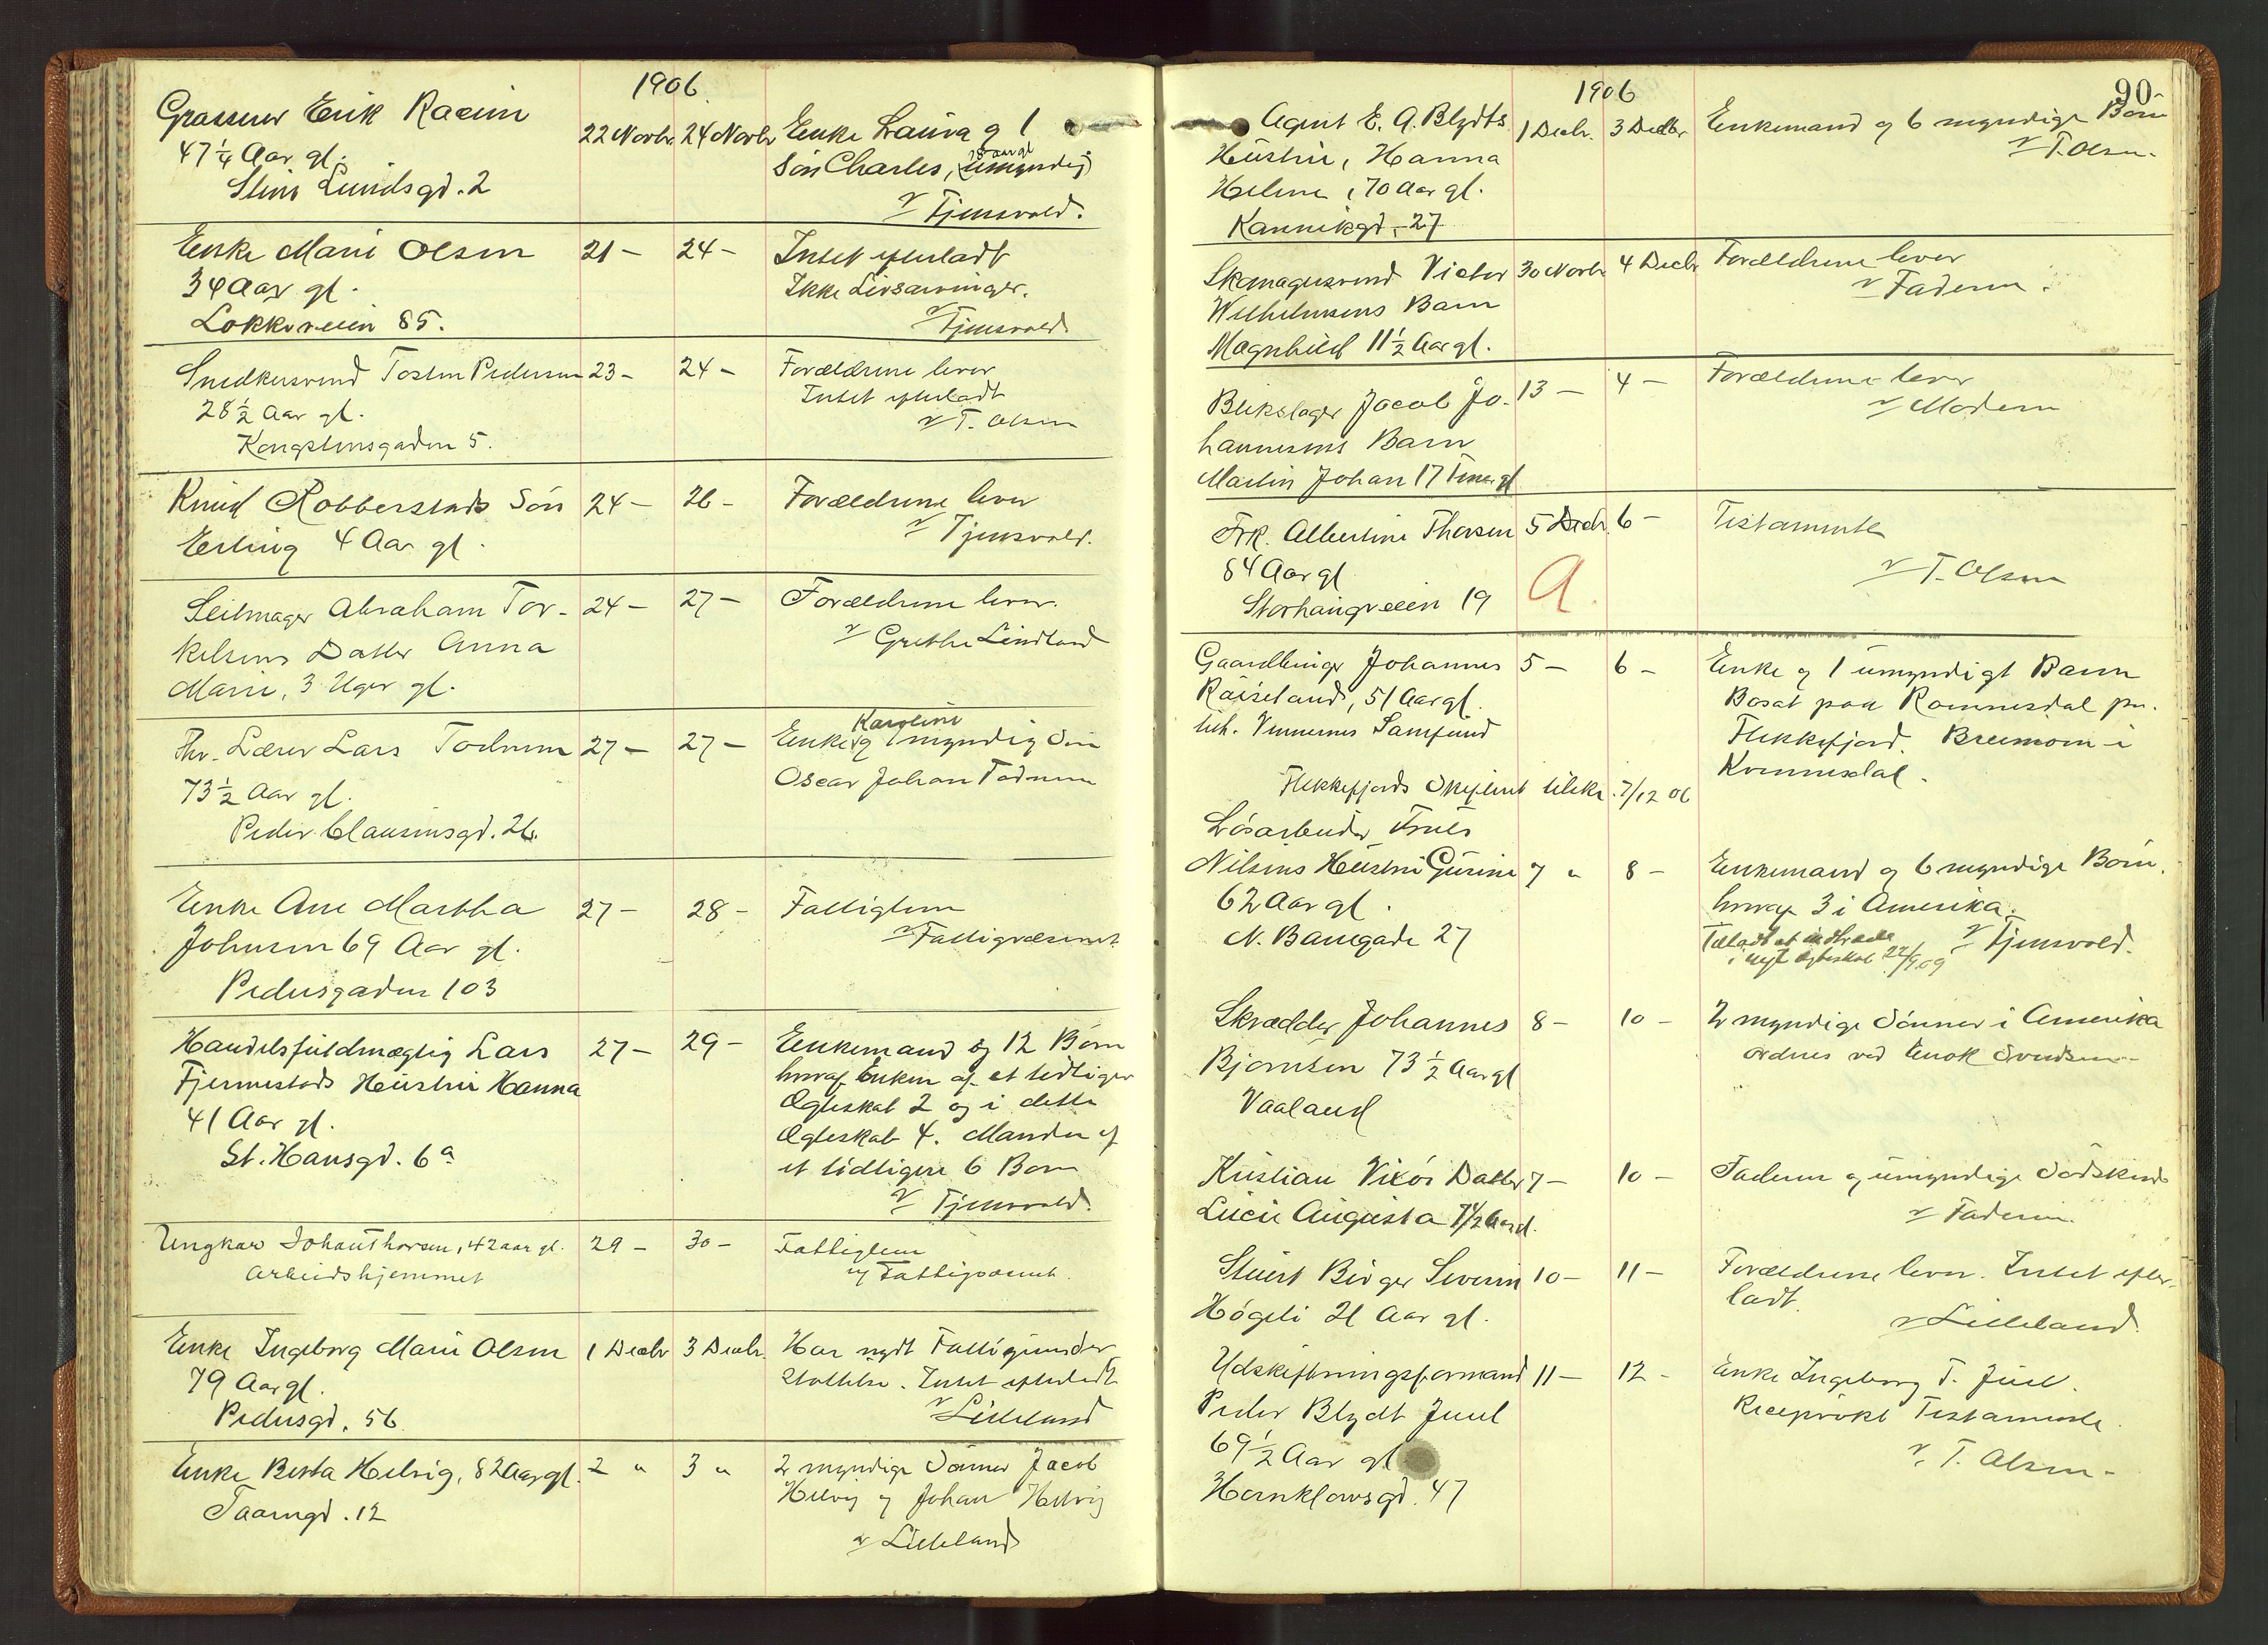 1906
Grosserer Erik Racin 22 Novbr. 24 Novbr Enke Laura og 1
47 1/4 Aar gl. Søn Charles, (umyndig) 18 aar gl
Stine Lundsgd. 2 v/ Tjensvold.
Enke Marie Olsen 21 - 24 - Intet efterladt
34 Aar gl. Ikke Livsarvinger.
Lokkeveien 85. v/ Tjensvold
Snedkersvend Tosten Pedersen 23 - 24 - Forældrene lever
28 1/2 Aar gl. Intet efterladt
Kongstensgaden 5. v/ T. Olsen
Knud Robberstads Søn 24 - 26 - Forældrene lever
Erling 4 Aar gl. v/ Tjensvold.
Seilmager Abraham Tor- 24 - 27 - Forældrene lever.
kelsens Datter Anna v/ Grethe Lindland
Marie, 3 Uger gl.
Fhv. Lærer Lars Todnem 27 - 27 - Enke Karoline og 1 myndig Søn
73 1/2 Aar gl. Oscar Johan Todnem
Peder Clausensgd. 26.
Enke Ane Martha 27 - 28 - Fattiglem
Johnsen 69 Aar gl. v/ Fattigvæsenet
Pedersgaden 103
Handelsfuldmægtig Lars 27 - 29 - Enkemand og 12 Børn
Fjermestads Hustru Hanna hvoraf Enken af et tidligere
41 Aar gl. Ægteskab 2 og i dette
St. Hansgd. 6a Ægteskab 4. Manden af
et tidligere 6 Børn
v/ Tjensvold.
Ungkar Johan Thorsen, 42 aar gl. 29 - 30 - Fattiglem
Arbeidshjemmet v/ Fattigvæsenet.
Enke Ingeborg Marie Olsen 1 Decbr 3 Decbr. Har nydt Fattigunder
79 Aar gl. støttelse. Intet efterladt
Pedersgd. 56 v/ Lilleland
Enke Berta Helvig, 82 Aar gl. 2 " 3 " 2 myndige Sønner Jacob
Taarngd. 12 Helvig og Johan Helvig
v/ Lilleland
1906 90
Agent E. A. Blydts 1 Decbr. 3 Decbr Enkemand og 6 myndige Børn
Hustru, Hanna v/ T. Olsen.
Helene, 70 Aar gl.
Kannikgd. 27
Skomagersvend Victor 30 Novbr 4 Decbr Forældrene lever
Wilhelmsens Barn v/ Faderen.
Magnhild 11 1/2 Aar gl.
Blikslager Jacob Jo- 13 - 4 - Forældrene lever
hannesens Barn v/ Moderen
Martin Johan 17 Timer gl
Frk. Albertine Thorsen 5 Decbr. 6 - Testamente
84 Aar gl v/ T. Olsen
Storhaugveien 19 A.
Gaardbruger Johannes 5 - 6 - Enke og 1 umyndigt Barn
51 Aar gl. Bosat paa
tilh. Vennernes Samfund Flekkefjord.
Flekkefjords Skifteret tilskr. 7/12 06
Løsarbeider
Nilsens Hustru Gurine 7 " 8 - Enkemand og 6 myndige Børn.
62 Aar gl. hvoraf 3 i Amerika.
N. Banegade 27 v/ Tjensvold.
Tilladt at indtræde
i nyt Ægteskab 22/9 09
Skrædder Johannes 8 - 10 - 2 myndige Sønner i Amerika
Bjørnsen 73 1/2 Aar gl ordnes ved Enok Svendsen
Vaaland
Kristian Vixos Datter 7 - 10 - Faderen og umyndige Sødskende
Lucie Augusta 7 1/2 Aar gl. v/ Faderen.
Stuert Birger Severin 10 - 11 - Forældrene lever. Intet efter-
Høgeli 21 Aar gl. ladt.
v/ Lilleland.
Udskiftningsformand 11 - 12 - Enke Ingeborg T. Juul.
Peder Blydt Juul Reciprokt Testamente.
69 1/2 Aar gl v/ T. Olsen
Hornklowsgd. 47